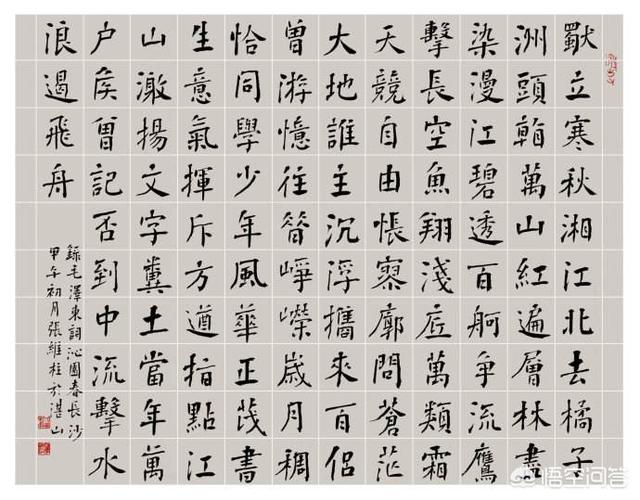 獨立寒秋湘江北去橘子
洲頭看萬山紅遍層林盡
染漫江碧透百舸争流鷹
擊長空魚翔淺底萬類霜
天競自由悵寥廓問蒼茫
大地誰主沉浮攜來百侣
曾游憶往昔崢嶸歲月稠
恰同學少年風華正茂書
生意氣揮斥方遒指點江
山激揚文字糞土當年萬
户侯曾記否到中流擊水
浪遏飛舟
録毛澤東詞沁園春長沙
甲午初月張維柱於湛山
悟空问答